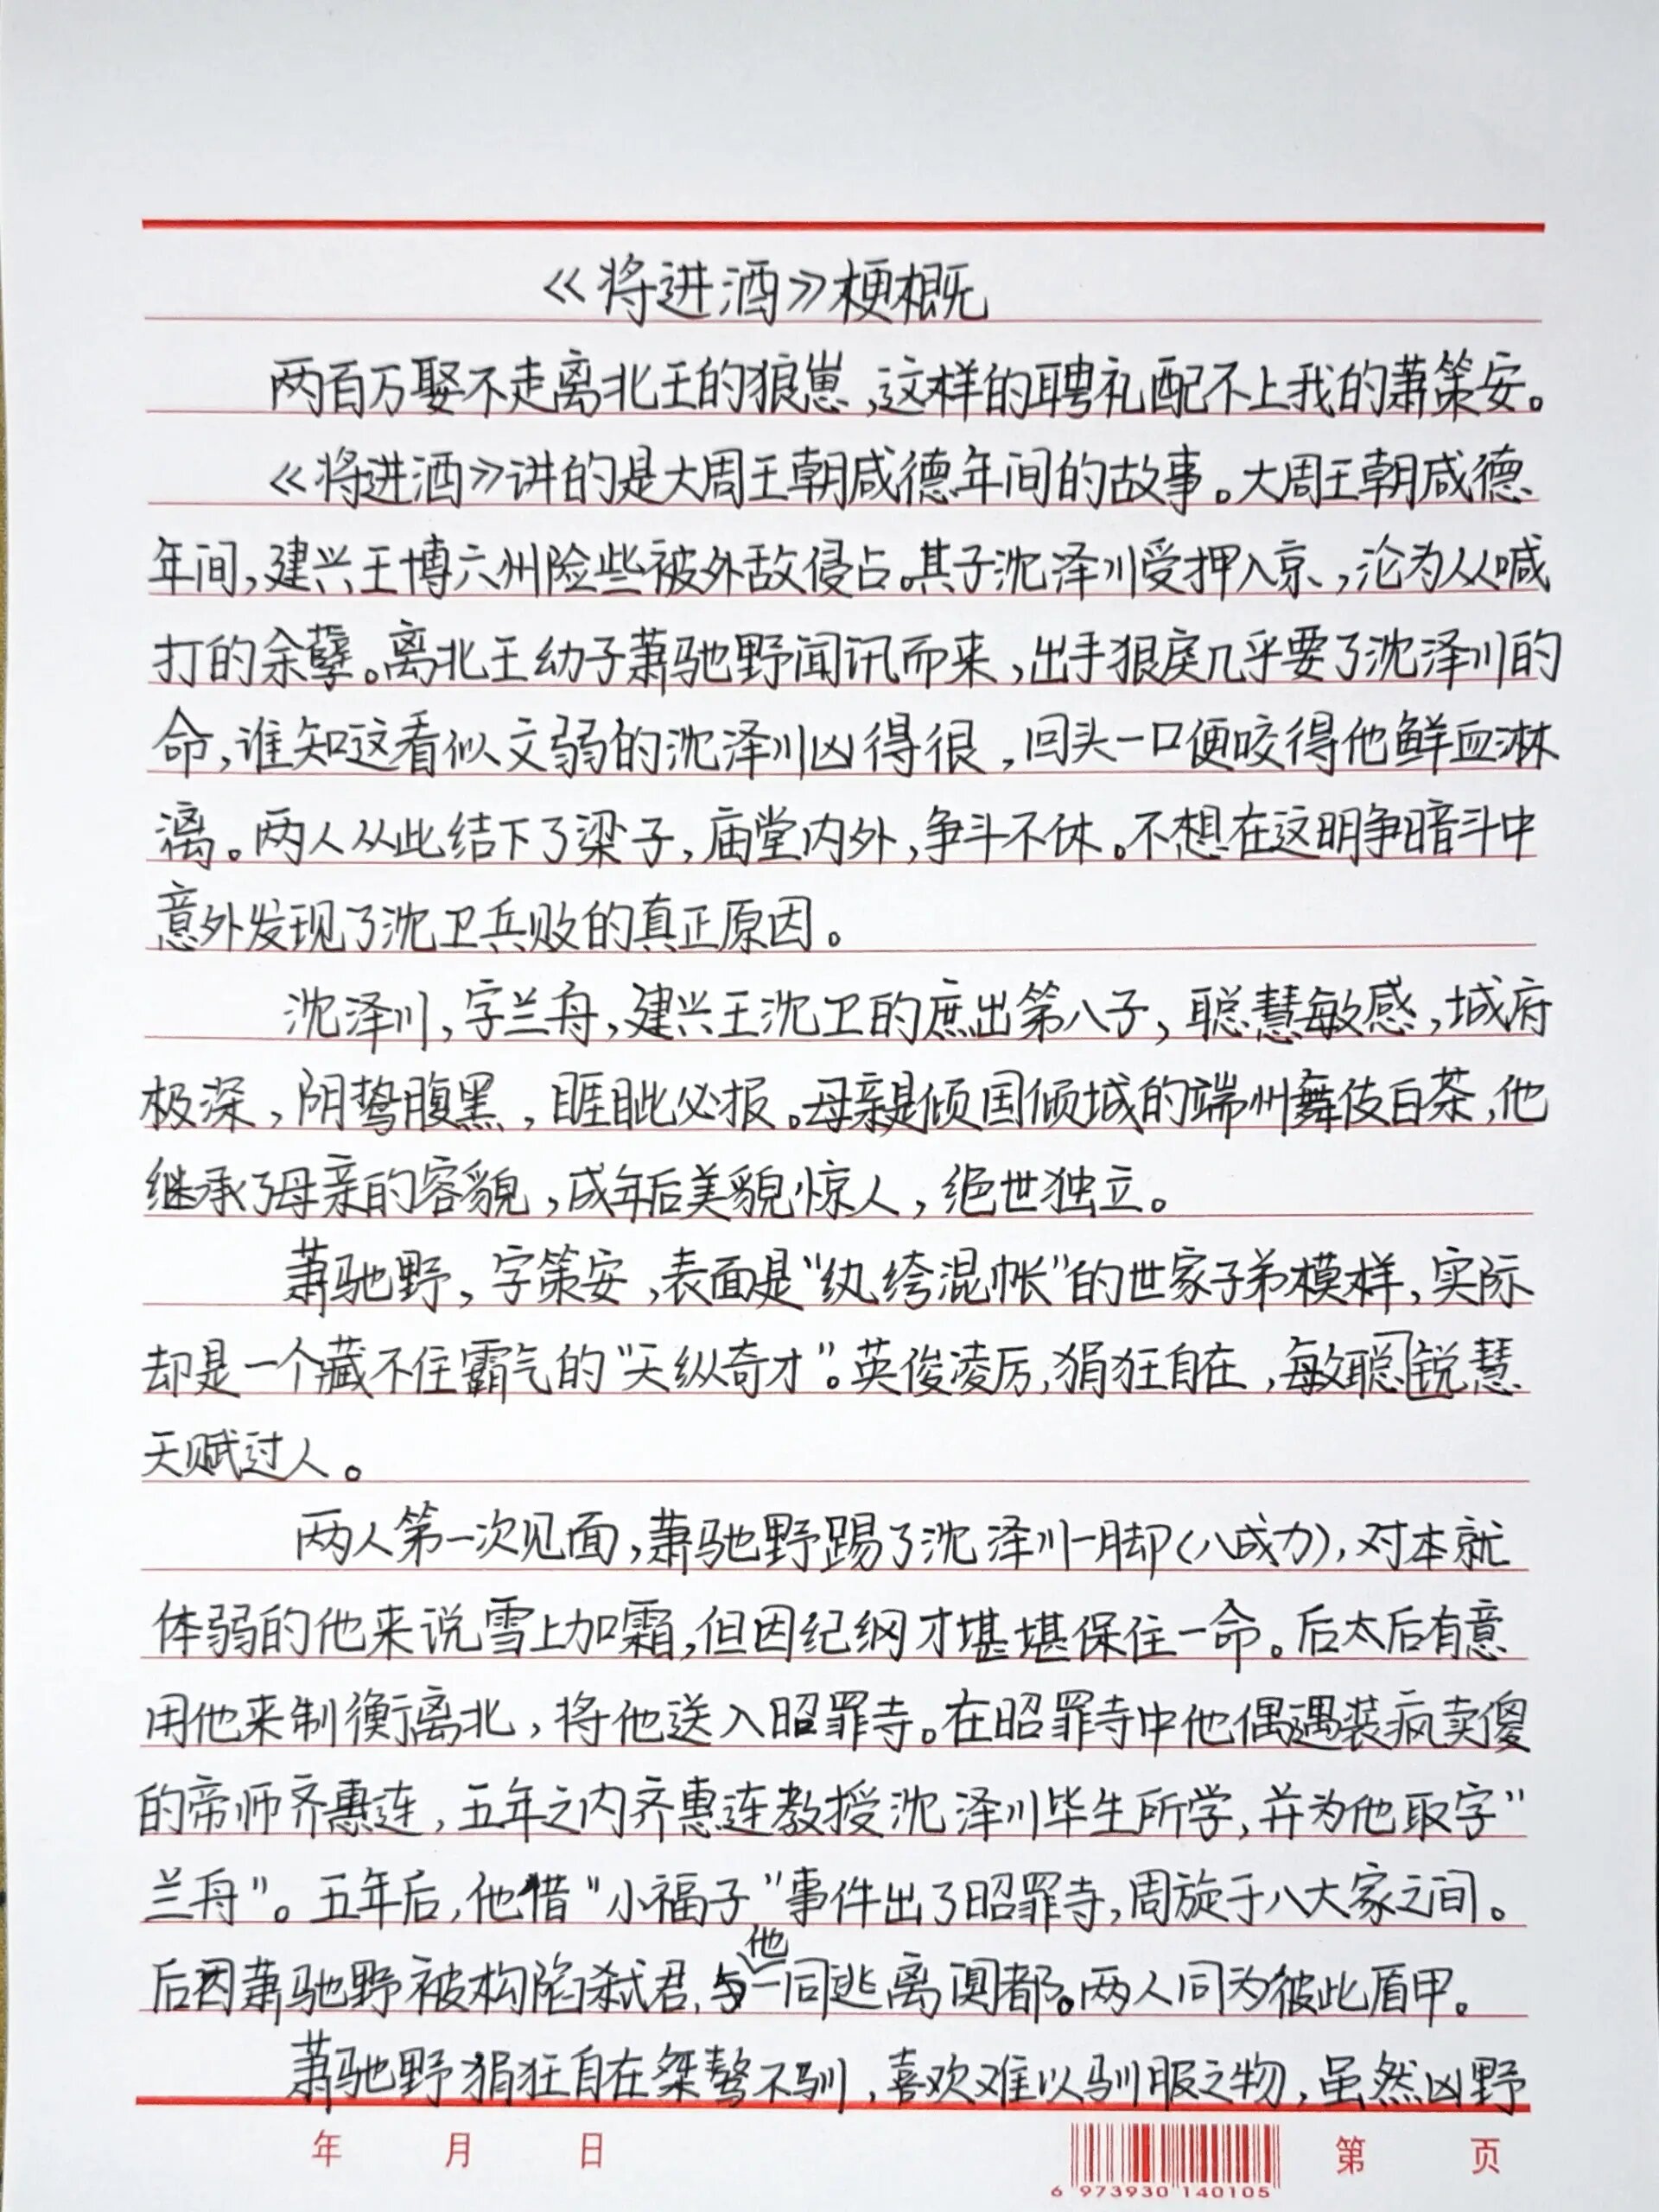 《将进酒》梗概
两百万娶不走离北王的狼崽,这样的聘礼配不上我的萧策安。
《将进酒》讲的是大周王朝咸德年间的故事。大周王朝咸德
年间,建兴王博六州险些被外敌侵占。其子沈泽川受押入京,沦为人人喊
打的余孽。离北王幼子萧驰野闻讯而来,出手狠戾几乎要了沈泽川的
命,谁知这看似文弱的沈泽川凶得很,回头一口便咬得他鲜血淋
漓。两人从此结下了梁子,庙堂内外,争斗不休。不想在这明争暗斗中
意外发现了沈卫兵败的真正原因。
沈泽川,字兰舟,建兴王沈卫的庶出第八子,聪慧敏感,城府
极深,阴鸷腹黑,睚眦必报。母亲是倾国倾城的端州舞伎白茶,他
继承了母亲的容貌,成年后美貌惊人,绝世独立。
萧驰野,字策安,表面是“纨绔混帐”的世家子弟模样,实际
却是一个藏不住霸气的“天纵奇才”。英俊凌厉,狷狂自在,敏聪锐慧
天赋过人。
两人第一次见面,萧驰野踢了沈泽川一脚(八成力),对本就
体弱的他来说雪上加霜,但因纪纲才堪堪保住一命。后太后有意
用他来制衡离北,将他送入昭罪寺。在昭罪寺中他偶遇装疯卖傻
的帝师齐惠连,五年之内齐惠连教授沈泽川毕生所学,并为他取字“
兰舟”。五年后,他借“小福子”事件出了昭罪寺,周旋于八大家之间。
后因萧驰野被构陷弑君,与他一同逃离阒都。两人同为彼此盾甲。
萧驰野狷狂自在桀骜不驯,喜欢难以驯服之物,虽然凶野
年 月 日
6 973930 140105
第 页